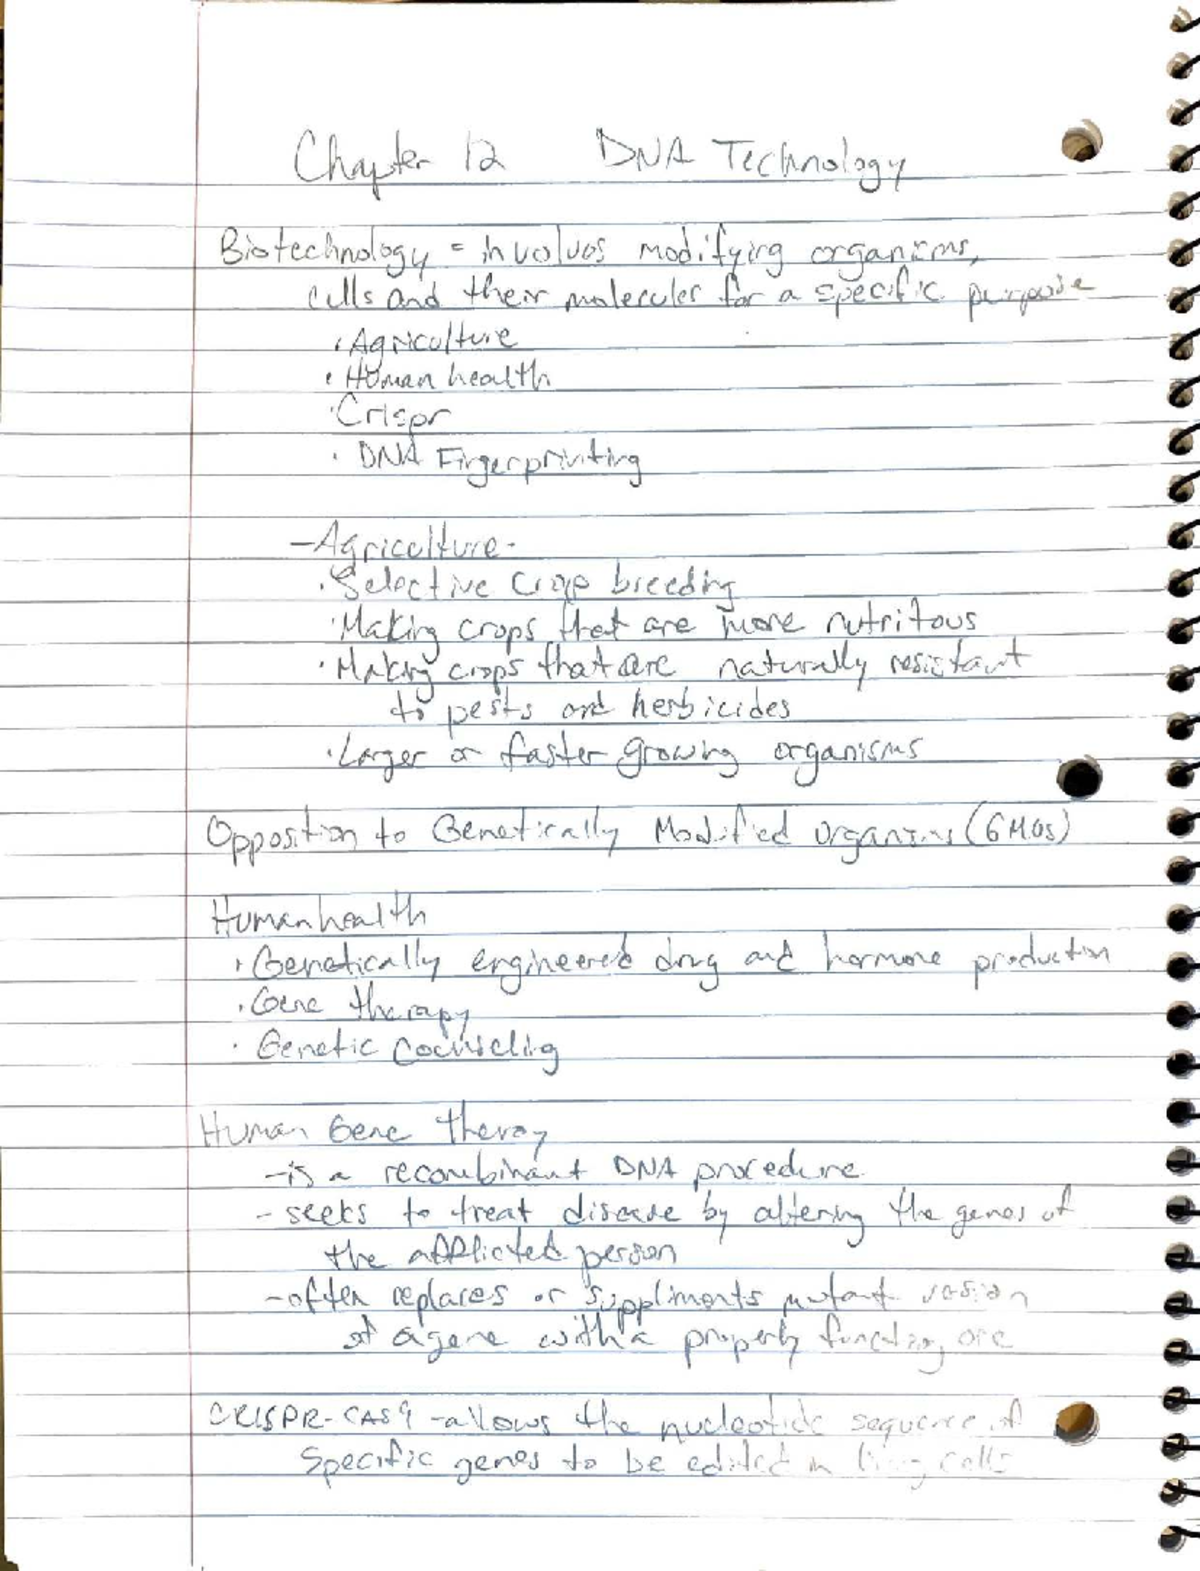 Chapter 12 DNA Technology
Biotechnology = involves modifying organisms,
cells and their molecules for a specific purpose
· Agriculture
· Human health
· Crispr
· DNA Fingerprinting
- Agriculture -
· Selective Crop breeding
· Making crops that are more nutritous
· Making crops that are naturally resistant
to pests and herbicides
· Larger or faster growing organisms
Opposition to Genetically Modified organisms (GMOs)
Human health
· Genetically engineered drug and hormone production
· Gene therapy
· Genetic Counseling
Human Gene theray
- is a recombinant DNA procedure
- seeks to treat disease by altering the genes of
the afflicted person
- often replaces or suppliments mutant version
of a gene with a properly functioning one
CRISPR-CAS9 - allows the nucleotide sequence of
Specific genes to be edited in living cells